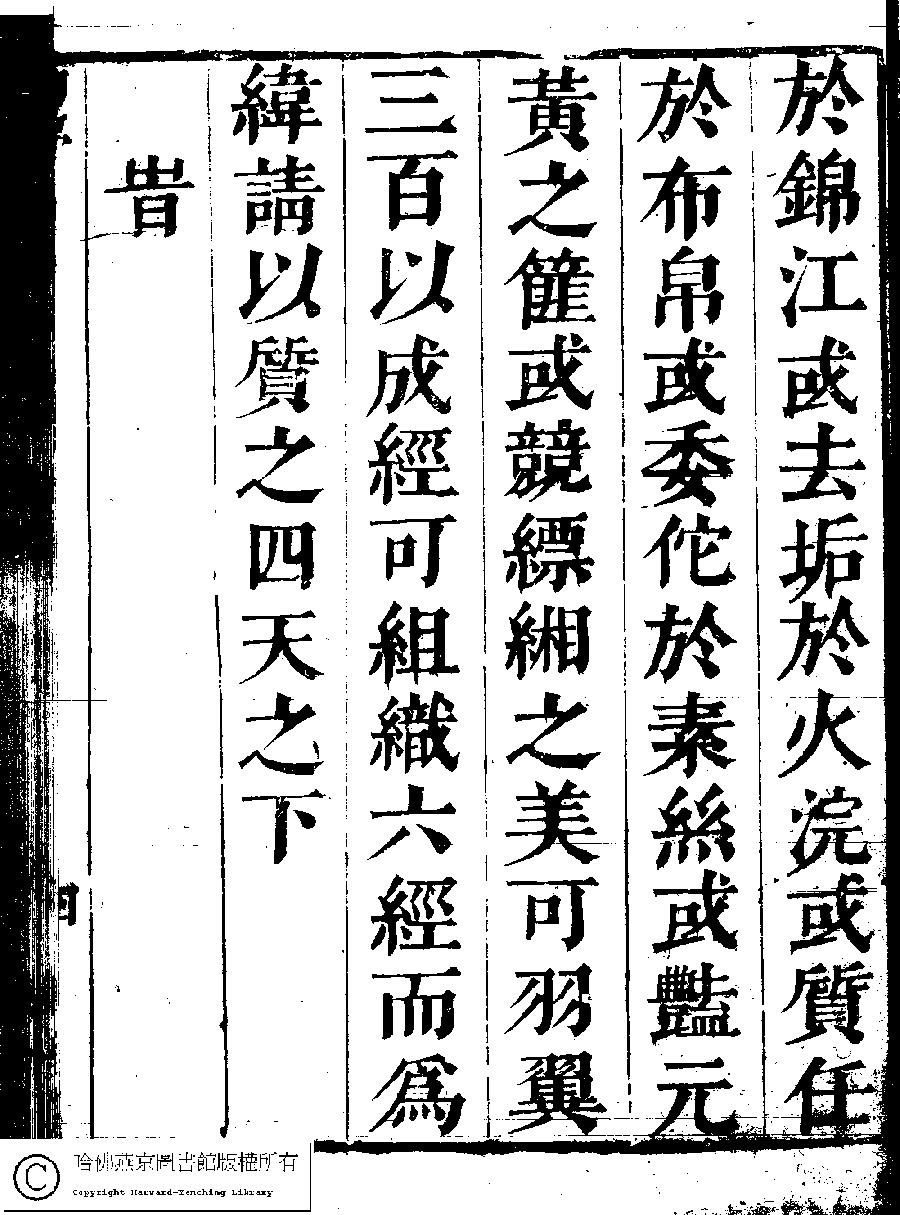 於錦江或去垢於火浣或質任
於布帛或委佗於素絲或豔元
黃之篚或競縹緗之美可羽翼
三百以成經可組織六經而為
緯請以質之四天之下
旹
哈佛燕京圖書館版權所有
Copyright Harvard-Yenching Library